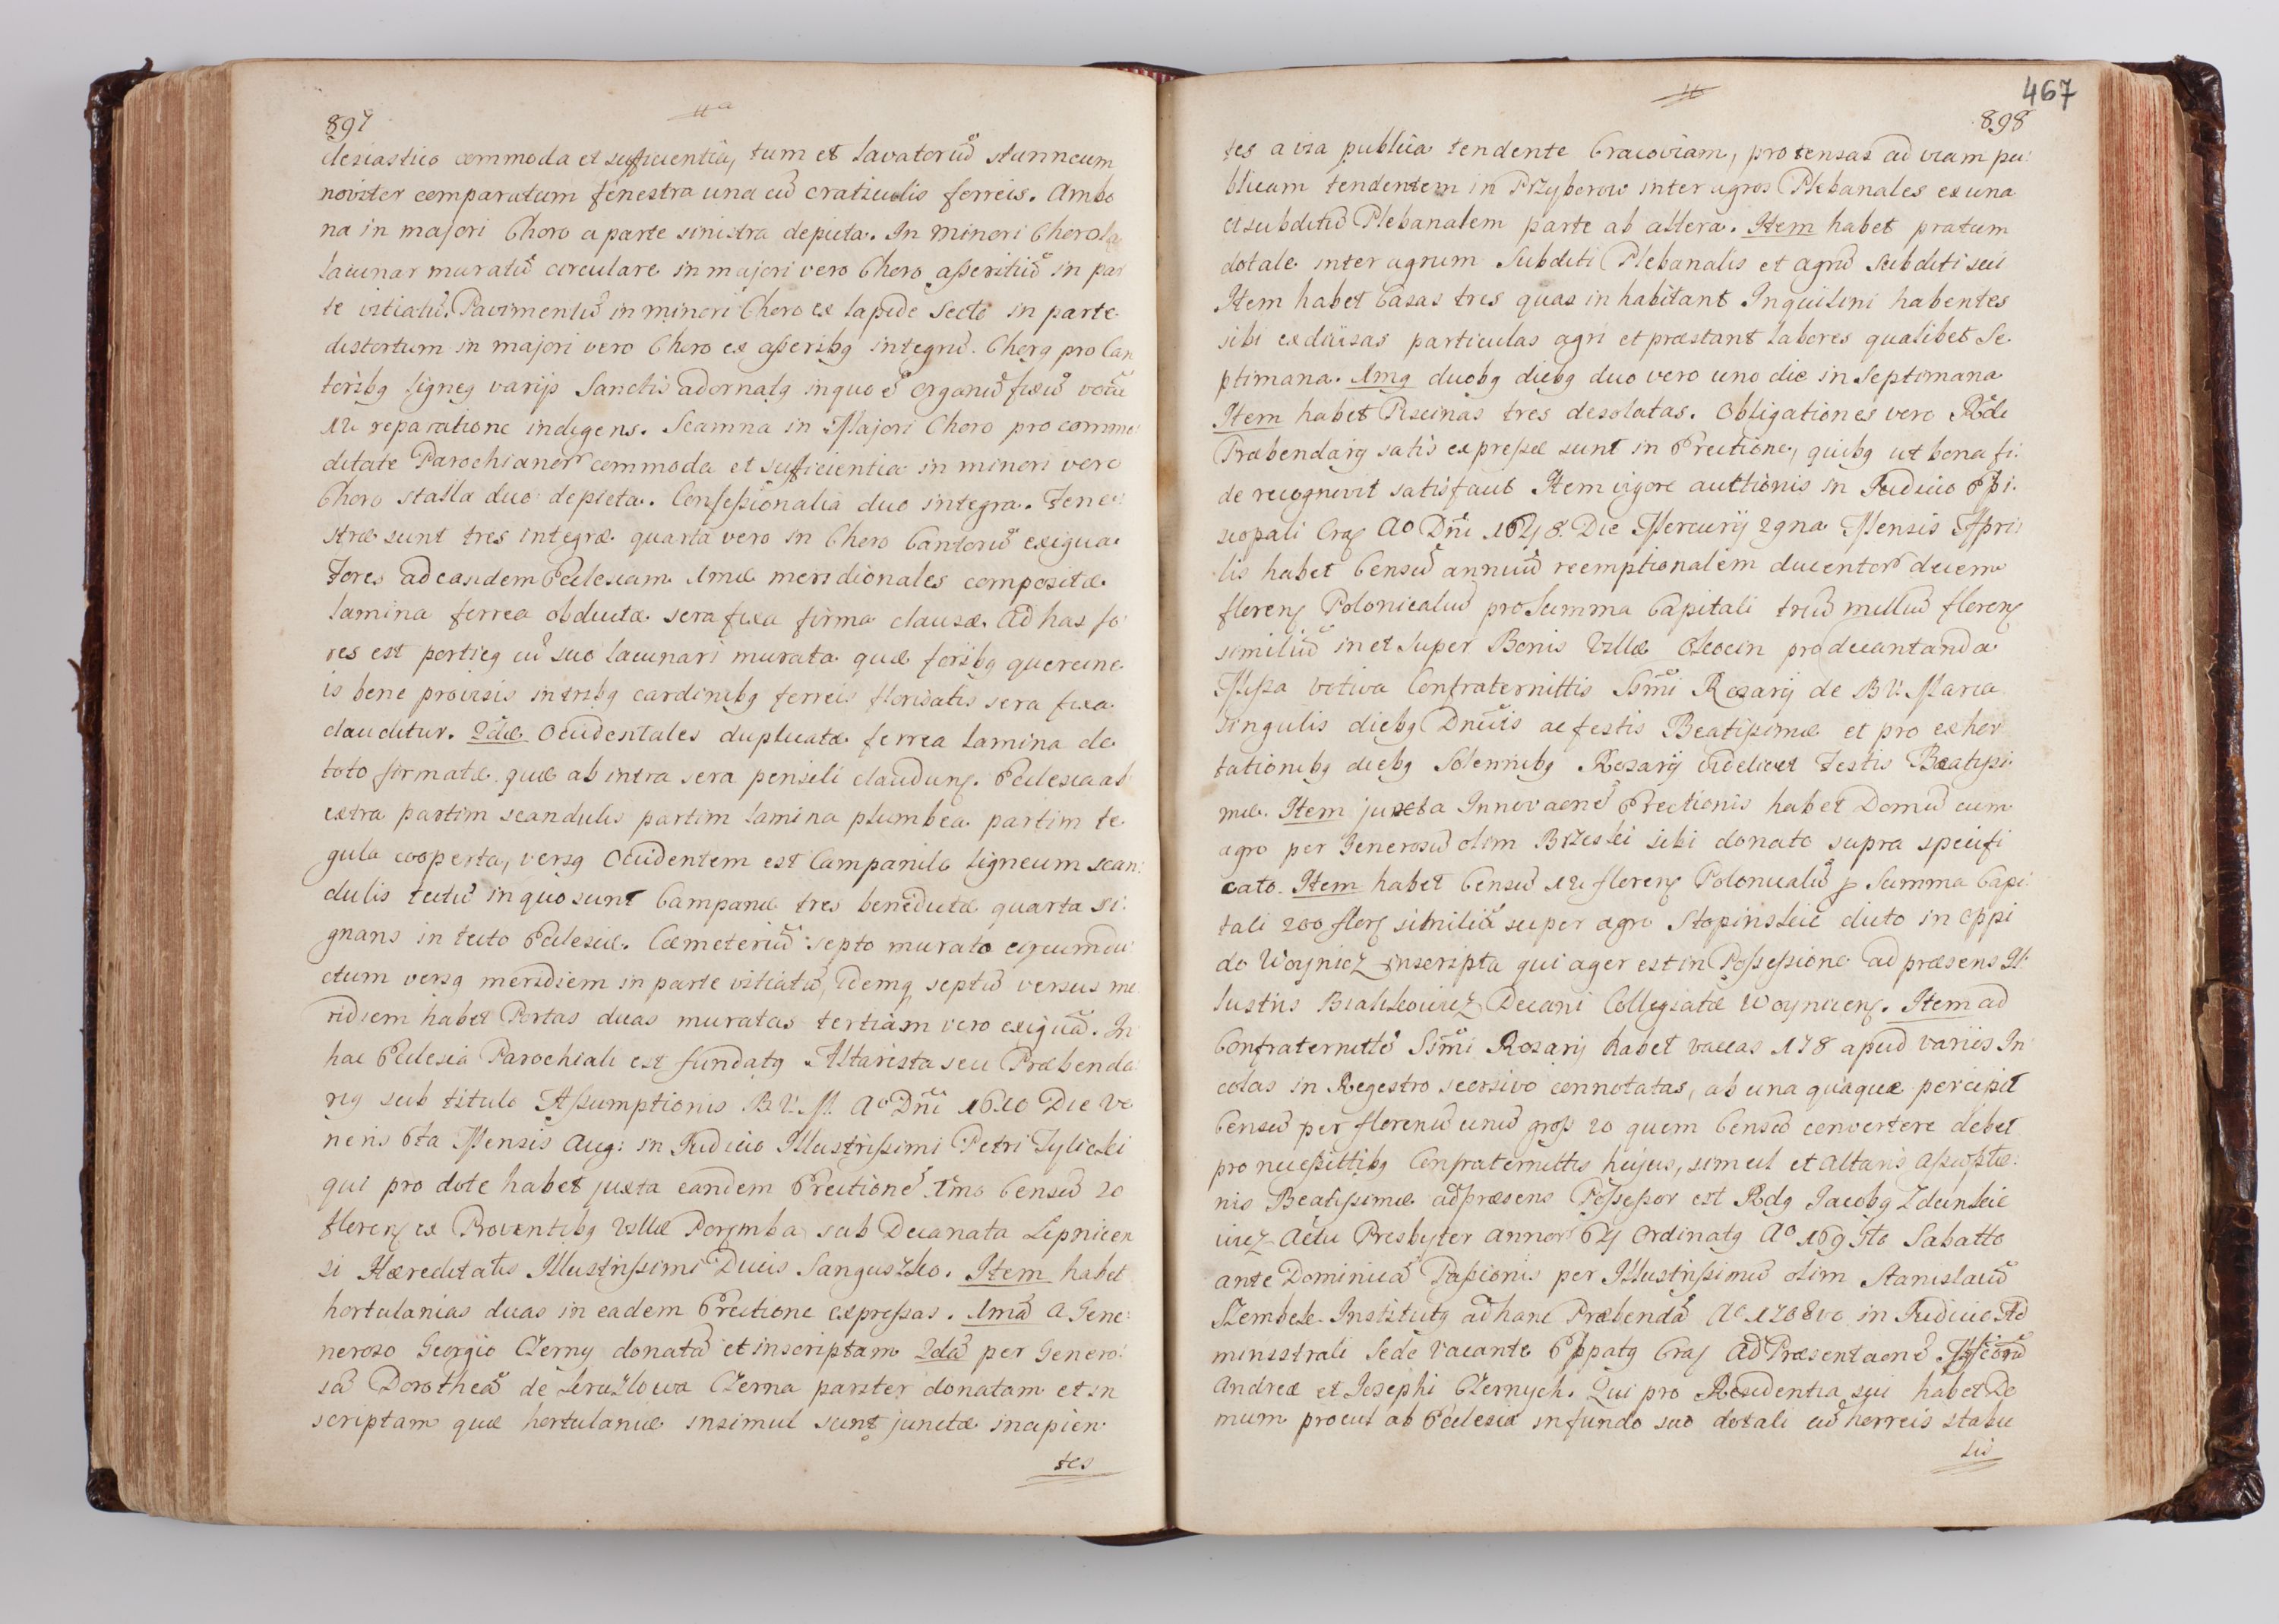 897
clesiastico commoda et sufficientia, tum et Lavatoriu᷉ stanneum
noviter comparatum fenestra una cu᷉ craticulis ferreis. Ambo
na in majori Choro a parte sinistra depicta. In minori Choro
lacunar muratu᷉ circulare in majori vero Choro asseritiu᷉ in par
te vitiatu᷉. Pavimentu᷉ in minori Choro ex lapide Secto in parte
distortum in majori vero Choro ex asseribq integru᷉. Chorq pro Can
toribq ligneq varijs Sanctis adornatq in quo e᷉ organu᷉ fixu᷉
12 reparatione indigens. Scamna in Majori Choro pro commo
ditate Parochianor commoda et sufficientia in minori vero
Choro stalla duo depicta. Confessionalia duo integra. Fene
stræ sunt tres integræ quarta vero in Choro Cantoru᷉ exigua.
Fores ad easdem Ecclesiam 1mæ meridionales compositæ
lamina ferrea obductæ sera fixa firma clausæ. Ad has fo
res est porticq cu᷉ suo Lacunari murata quæ foribq quercine
is bene provisis intribq cardinibq ferreis florisatis sera fixa
clauditur. 2dæ Occidentales duplicatæ ferrea lamina de
toto firmatæ quæ ab intra sera pensili claudunꝶ. Ecclesia ab
extra partim scandulis partim lamina plumbea partim te
gula cooperta, versq Occidentem est Campanile ligneum scan:
dulis tectu᷉ in quo sunt Campanæ tres benedictæ quarta si:
gnans in tecto Ecclesiæ. Cæmeteriu᷉ septo murato circumdu
ctum versq meridiem in parte vitiatu᷉, idemq septu᷉ versus me
ridiem habet Portas duas muratas tertiam vero exigua᷉. In
hac Ecclesia Parochiali est fundatq Altarista seu Præbenda
riq sub titulo Assumptionis B.V.M. Ao Dn᷉i 1610 Die Ve
neris 6ta Mensis Aug: in Judicio Illustrissimi Petri Tylicki
qui pro dote habet juxta eandem Erectione᷉ 1mo Censu᷉ 20
florenꝶ ex Proventibq Villæ Poręmba sub Decanatu Lipnicen
si Hæreditatis Illustrissimi Ducis Sanguszko. Item habet
hortulanias duas in eadem Erectione expressas. 1ma᷉ a Gene:
neroso Georgio Czerny donata᷉ et inscriptam 2da᷉ per Genero:
sa᷉ Dorothea᷉ de Czerna pariter donatam et in
scriptam quæ hortulaniæ insimul sunt junctæ incipien
tes
467
898
tes a via publica tendente Cracoviam, protensas ad viam pu:
blicam tendentem in Przyborow inter agros Plebanales ex una
et subditu᷉ Plebanalem parte ab altera. Item habet pratum
dotale inter agrum Subditi Plebanalis et agru᷉ subditi sui
Item habet Casas tres quas inhabitant Inquilini habentes
sibi excisas particulas agri et præstant labores qualibet Se
ptimana. 1mq duobq diebq duo vero uno die in Septimana
Item habet Piscinas tres desolatas. Obligationes vero Rdi
Præbendarij satis expressæ sunt in Erectione, quibq ut bona fi:
de recognovit satisfacit Item vigore auctionis in Judicio Epi:
scopali Craꝶ Ao Dn᷉i 1648. Die Mercurij 29na Mensis Apri:
lis habet Censu᷉ annuu᷉ reemptionalem ducentor decem
florenꝶ Polonicaliu᷉ pro Summa Capitali triu᷉ milliu᷉ florenꝶ
similiu᷉ in et super Bonis Villæ pro decantanda
Missa votiva Confraternittis SSm᷉i Rosarij de B.V. Maria
singulis diebq Dn᷉icis ac festis Beatissimæ et pro exhor
tationibq diebq Solennibq Rosarij videlicet Festis Beatissi:
mæ. Item juxta Innovaone᷉ Erectionis habet Domu᷉ cum
agro per Generosu᷉ olim Brzeski sibi donato supra specifi
cato. Item habet Censu᷉ 12 florenꝶ Polonicaliu᷉ p Summa Capi
tali 200 florꝶ similiu᷉ super agro dicto in Oppi
do Woynicz inscripta qui ager est in Possessione ad præsens Il:
lustris Decani Collegiatæ Woynicenꝶ. Item ad
Confraternitte᷉ SSm᷉i Rosarij habet vaccas 178 apud varios In
colas in Regestro seorsivo connotatas, ab una quaquæ percipit
Censu᷉ per florenu᷉ unu᷉ gross 20 quem Censu᷉ convertere debet
pro necessittibq Confraternittis hujus, simul et Altaris Assumptio:
nis Beatissimæ ad præsens Possessor est Rdq Jacobq Zdunkie
wicz Actu Presbyter annor 64 Ordinatq Ao Sabatto
ante Dominica᷉ Passionis per Illustrissimu᷉ olim Stanislau᷉
Szembek Institutq ad hanc Præbenda᷉ Ao 1708vo in Judicio Ad
ministrali Sede vacante Eppatq Craꝶ Ad Præsentaone᷉
Andreæ et Josephi Czernych. Qui pro Residentia sui habet Do
mum procul ab Ecclesia in fundo suo dotali cu᷉ horreis stabu
lis